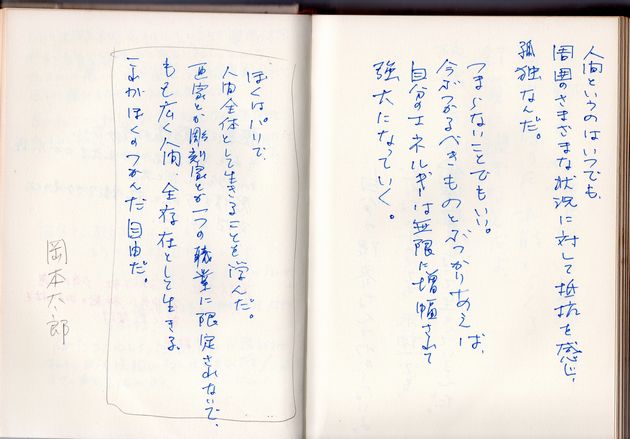 人間というのはいつでも、
周囲のさまざまな状況に対して抵抗を感じ、
孤独なんだ。
つまらないことでもいい。
今ぶつかるべきものとぶつかりあえば、
自分のエネルギーは無限に増幅されて
強大になっていく。
ぼくはパリで、
人間全体として生きることを学んだ。
画家とか彫刻家とか一つの職業に限定されないで、
もっと広く人間、全存在として生きる。
これがぼくのつかんだ自由だ。
岡本太郎